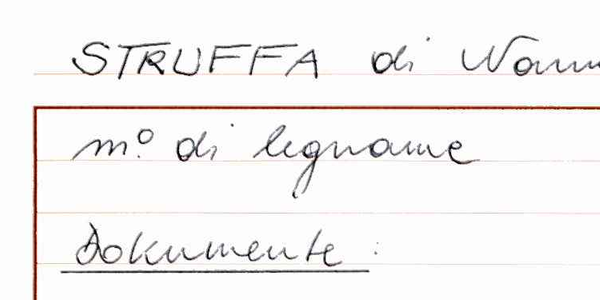 STRUFFA di
m.º di legname
Dokumente: